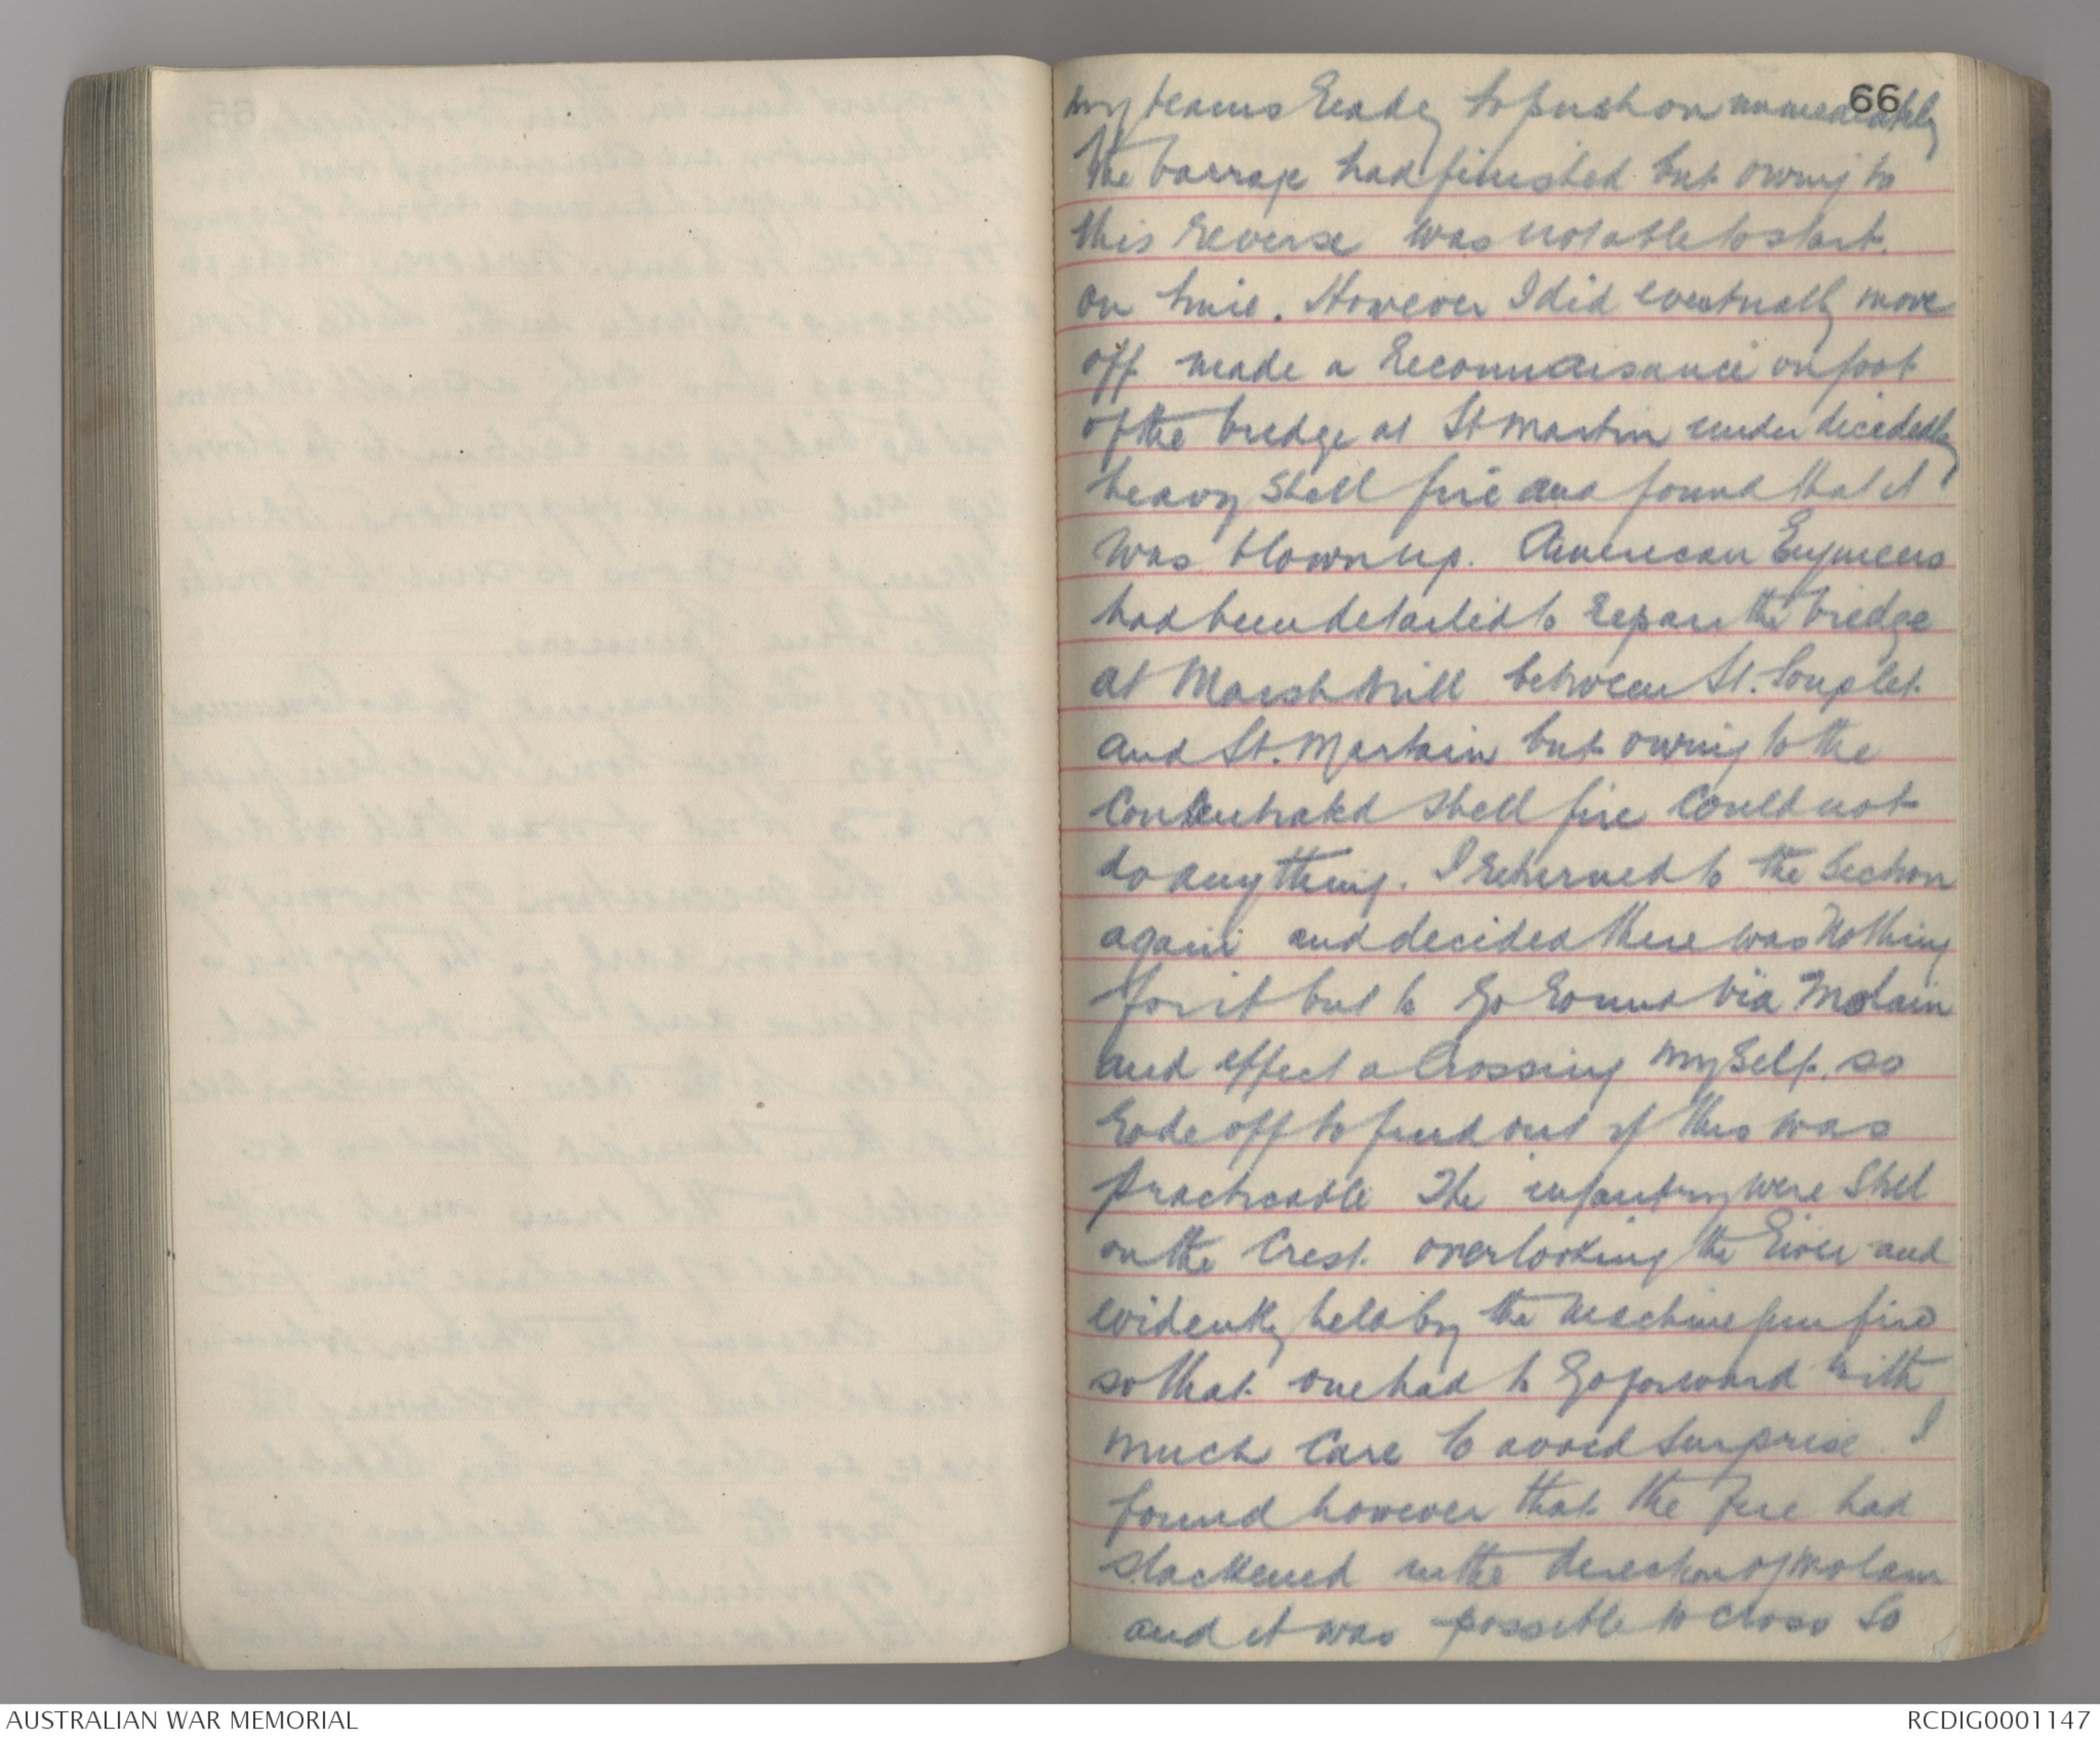 66
my teams ready to push on immediately
the barrage had finished but owing to
this reverse was not able to start
on time. However I did eventually move
off made a reconnaisance on foot
of the bridge at St Martin under decidedly
heavy shell fire and found that it
was blown up. American Engineers
had been detailed to repair the bridge
at Marsh Mill between St. Souplet
and St. Martain but owing to the
concentrated shell fire could not
do anything. I returned to the section
again and decided there was nothing
for it but to go round via Molain
and effect a crossing myself. so
rode off to find out if this was
practicable The infantry were still
on the crest overlooking the river and
evidently held by the machine gun fire
so that one had to go forward with
much care to avoid surprise. I
found however that the fire had
slackened in the direction of Molain
and it was possible to cross so
AUSTRALIAN WAR MEMORIAL
RCDIG0001147